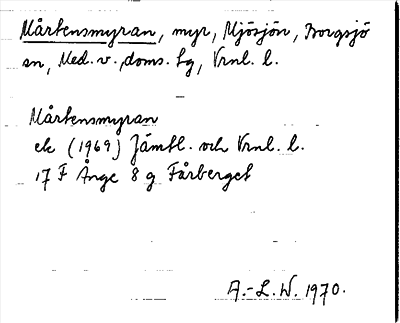 Mårtensmyran, myr, Mjösjön, Borgsjö
sn, Med. v. doms. tg, Vrnl. l.
Mårtensmyran
ek (1969) Jämtl. och Vrnl. l.
17 F Ånge 8 g Fårberget
A.-L.W. 1970.